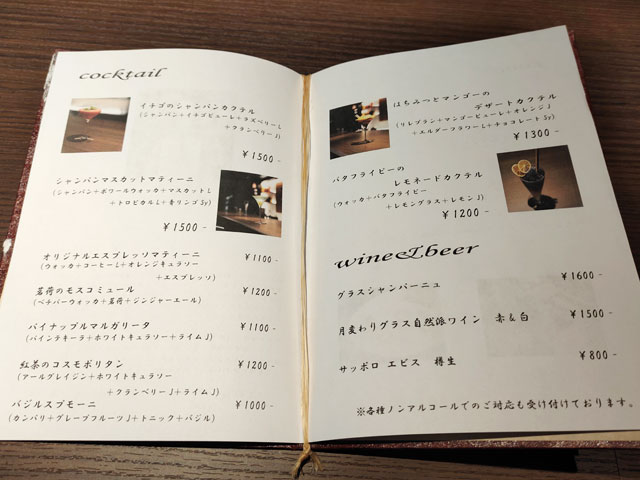 cocktail
イチゴのシャンパンカクテル
(シャンパン+イチゴピューレ+ラズベリーL
+クランベリーJ)
￥1500-
シャンパンマスカットマティーニ
(シャンパン+ポワールウォッカ+マスカットL
+トロピカルL+青リンゴSy)
￥1500-
オリジナルエスプレッソマティーニ ￥1100-
(ウォッカ+コーヒーL+オレンジキュラソー
+エスプレッソ)
茗荷のモスコミュール ￥1200-
(ベチバーウォッカ+茗荷+ジンジャーエール)
パイナップルマルガリータ ￥1100-
(パインテキーラ+ホワイトキュラソー+ライムJ)
紅茶のコスモポリタン ￥1200-
(アールグレイジン+ホワイトキュラソー
+クランベリーJ+ライムJ)
バジルスプモーニ ￥1000-
(カンパリ+グレープフルーツJ+トニック+バジル)
はちみつとマンゴーの
デザートカクテル
(リレブラン+マンゴーピューレ+オレンジJ
+エルダーフラワーL+チョコレートSy)
￥1300-
バタフライピーの
レモネードカクテル
(ウォッカ+バタフライピー
+レモングラス+レモンJ)
￥1200-
wine&beer
グラスシャンパーニュ ￥1600-
月変わりグラス自然派ワイン 赤&白 ￥1500-
サッポロ エビス 樽生 ￥800-
※各種ノンアルコールでのご対応も受け付けております。